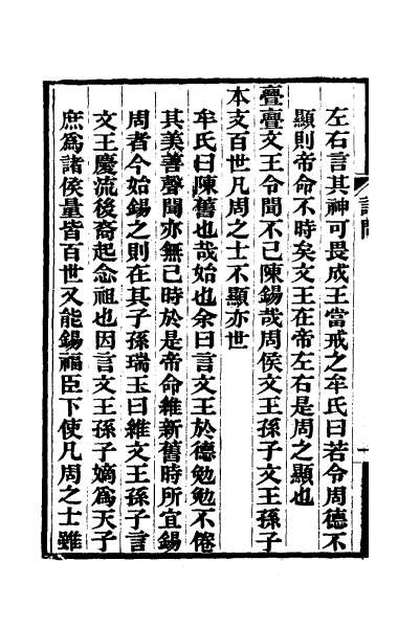 左右言其神可畏成王當戒之牟氏曰若令周德不
顯則帝命不時矣文王在帝左右是周之顯也
亹亹文王令聞不已陳錫哉周侯文王孫子文王孫子
本支百世凡周之士不顯亦世
牟氏曰陳舊也哉始也余曰言文王於德勉勉不倦
其美善聲聞亦無已時於是帝命維新舊時所宜錫
周者今始錫之則在其子孫瑞玉曰維文王孫子言
文王慶流後裔起念祖也因言文王孫子嫡為天子
庶為諸侯量皆百世又能錫福臣下使凡周之士雖
詩問